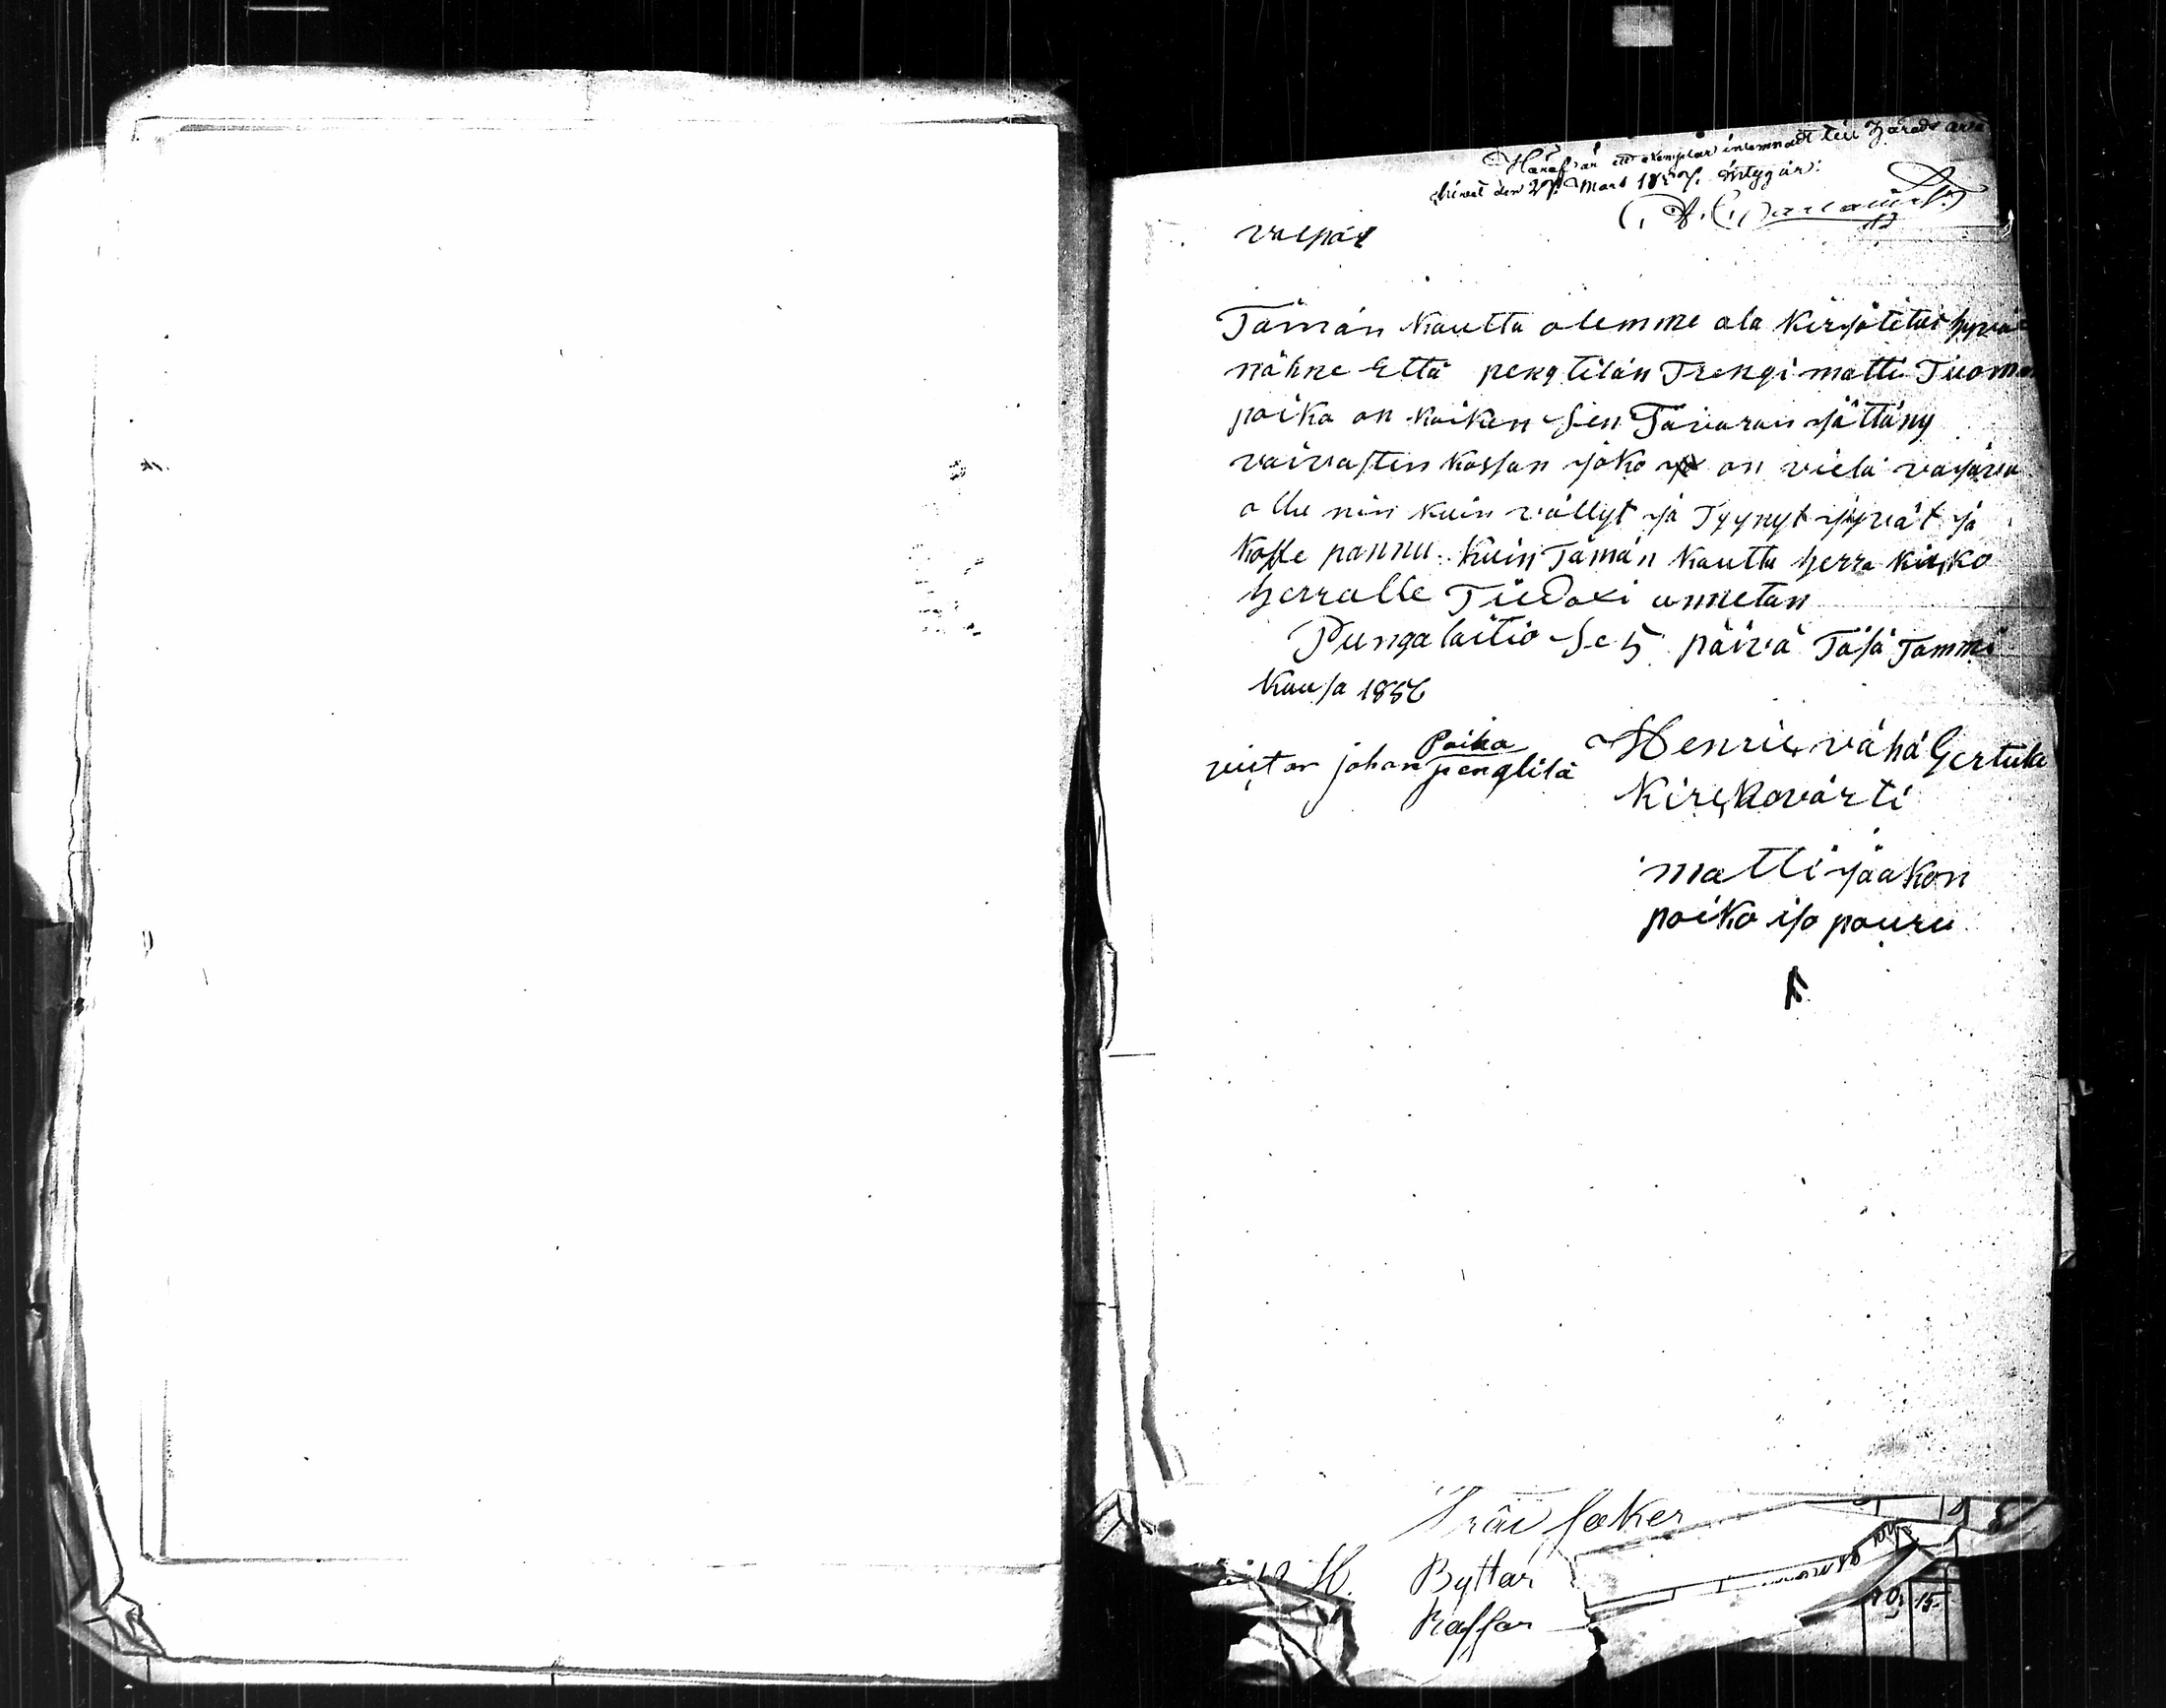 Häraf är ett exemplar inlemnadt till Härads arki
hivet den 27 Mars 1857. intygar:
vaspär
Tämän kautta olemme ala kirjotetut hyvä
nähne Että pengtilän Trengi matti Tuoman
poika on kaiken sen Tavaran jättäny
vaivasten kassan joko on vielä vajava
ollu nin kuin vällyt ja Tyynyt jyvät ja
koffe pannu. kuin Tämän kautta herra kirko
herralle Tiedoxi annetan
Pungalaitio se 5 päivä Täsä Tammi
kuusa 1856
Poika
viktor johan penglilä
Henric vähä Gertula
Kirckovärti
matti jaakon
poika iso pouru
Träd saker
Byttor
Kaffar
10 15